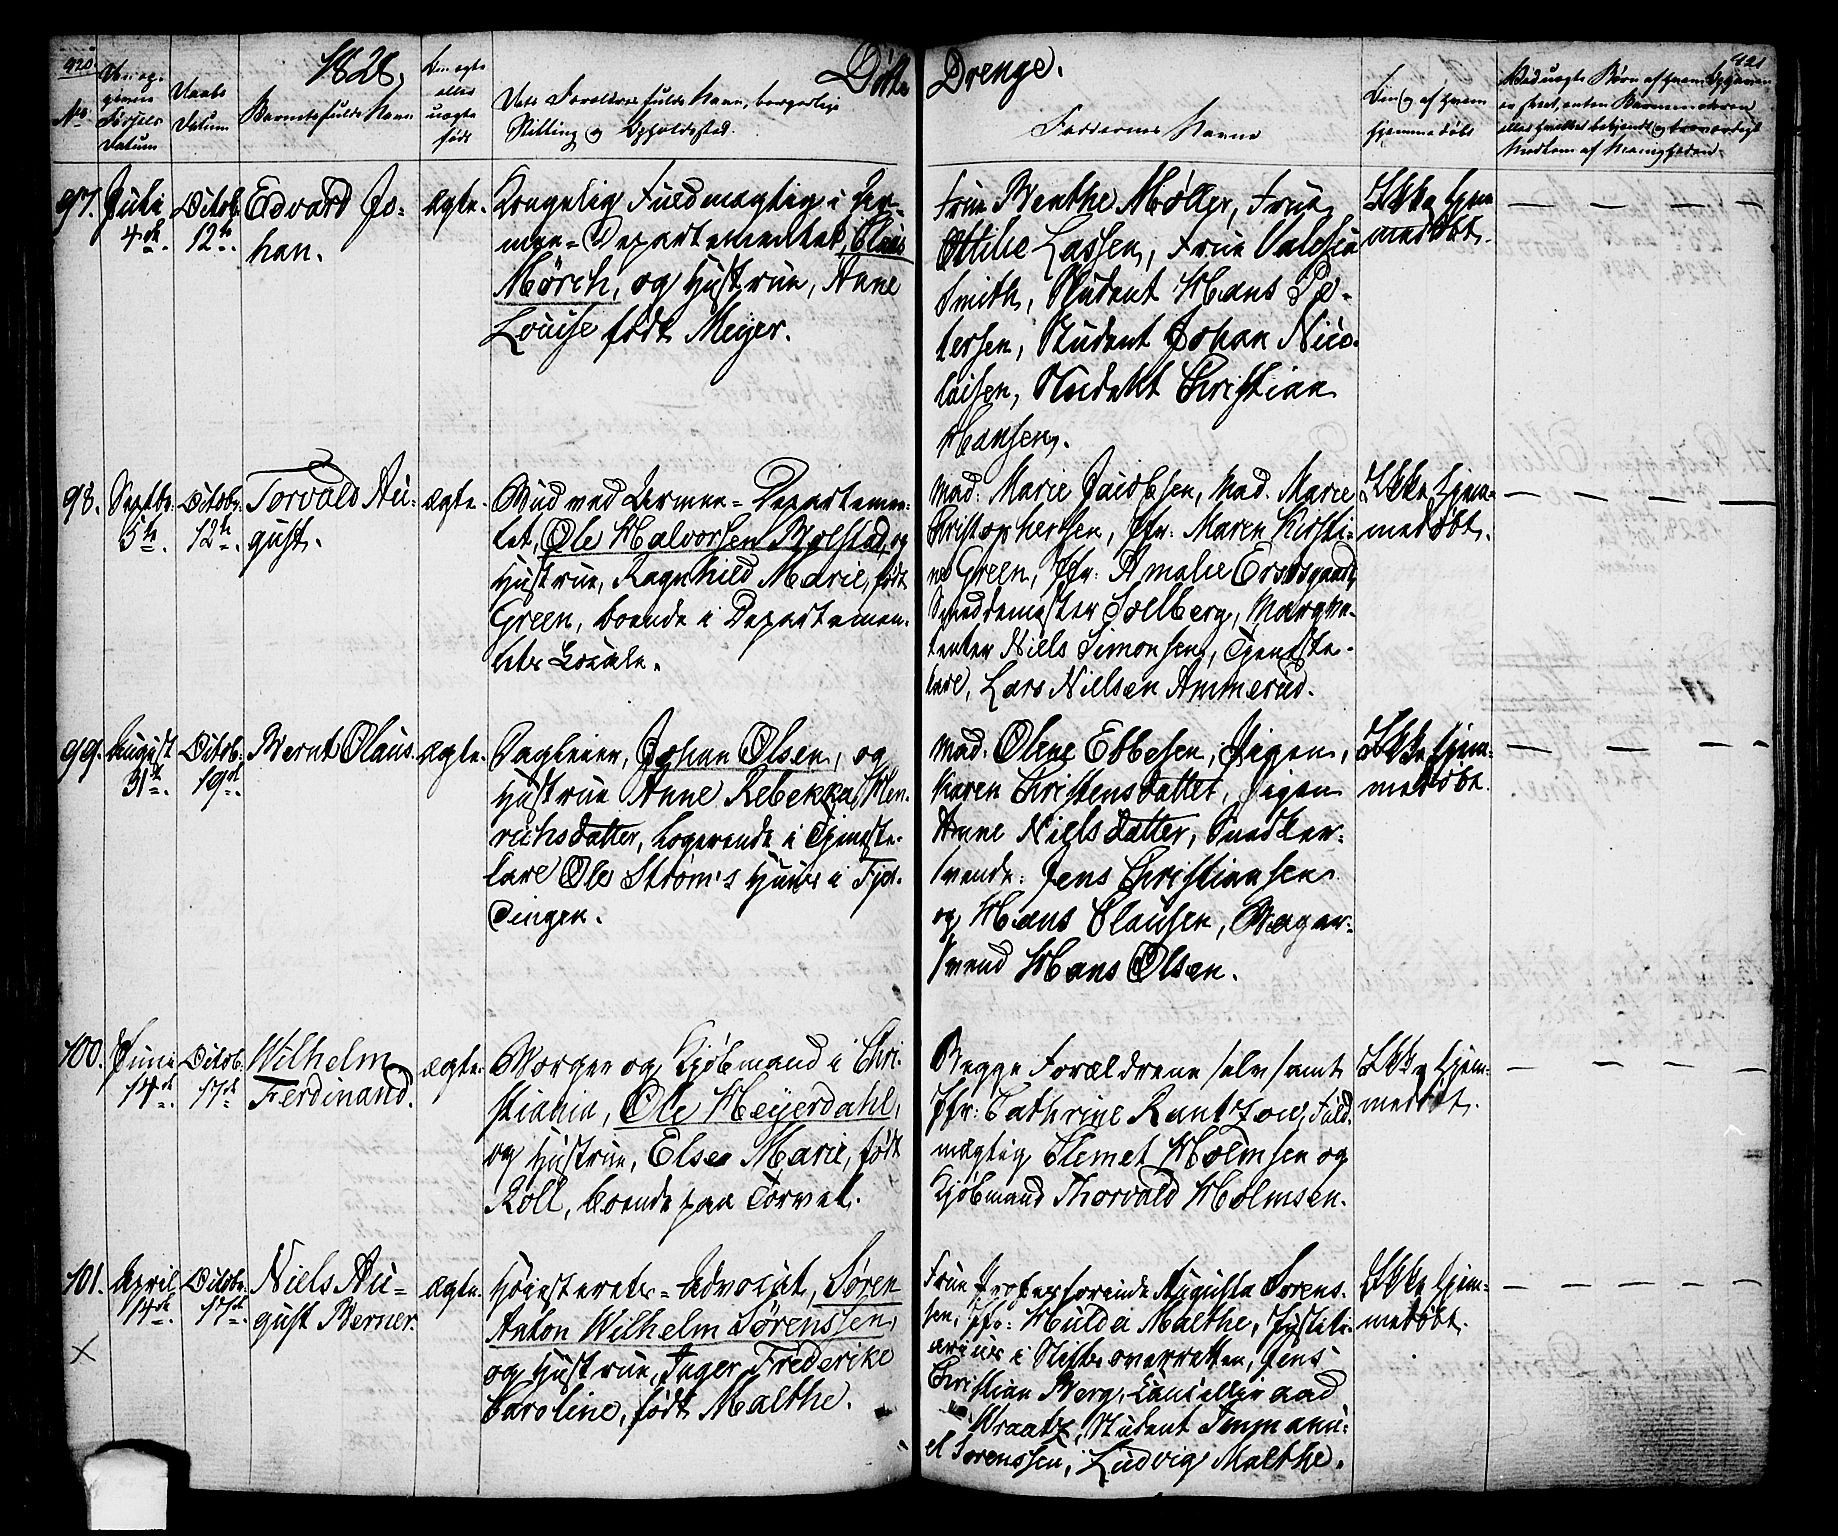 420.
1828.
Døbte
Drenge.
421
No
Den op-
givne
Fødsels
Datum
Daabs
Datum
Barnets fulde Navn
Om ægte
eller
uægte
født
Dets Forældres fulde Navn, borgerlige
Stilling og Opholdssted.
Faddernes Navne
Om og af hvem
hjemmedøbt
97. Juli
4de
Octob.
12te
Edvard Jo-
han.
ægte.
Kongelig Fuldmægtig i Ar-
mee-Departementet, Claus
Mörch, og Hustrue, Anne
Louise født Meyer.
Frue Benthe Møller, Frue
Ottilie Lassen, Frue Valesia
Smith, Student Hans Pe-
tersen, Student Johan Nico-
laisen, Student Christian
Hansen.
Ikke hjem-
medøbt.
98. Septbr.
5te
Octobr.
12te
Torvald Au-
gust.
ægte.
Bud ved Armee-Departemen-
tet, Ole Halvorsen Bolstad, og
Hustrue, Ragnhild Marie, født
Green, boende i Departemen-
tets Locale.
Mad. Marie Jacobsen, Mad. Marie
Christophersen, Jfr: Maren Kirsti-
ne Green, Jfr: Amalie
Smedemester Solberg, Marque-
tenter Niels Simonsen, Tjeneste-
karl, Lars Nielsen Ammerud.
Ikke hjem-
medøbt.
99. August
31te
Octob.
19de
Bernt Olaus.
ægte.
Dagleier, Johan Olsen, og
Hustrue Anne Rebekka Hen-
richsdatter, logerende i Tjeneste-
karl Ole Strøm's Huus i Fjer-
dingen.
Mad. Olene Ebbesen, Pigen,
Karen Christensdatter, Pigen
Anne Nielsdatter, Snedker-
svende: Jens Christiansen
og Hans Clausen, Bager-
svend Hans Olsen.
Ikke hjem-
medøbt.
100. Junii
14de
Octob.
17de
Wilhelm
Ferdinand.
ægte.
Borger og Kjøbmand i Chri-
stiania, Ole Heyerdahl,
og Hustrue, Elsee Marie, født
Roll, boende paa Torvet.
Begge Forældrene selv samt
Jfr: Cathrine Rantzow, Fuld-
mægtig Clemet Holmsen og
Kjøbmand Thorvald Holmsen.
Ikke hjem-
medøbt.
101. April
14de
Octobr.
17de
Niels Au-
gust Werner.
ægte.
Høiesterets-Advocat, Søren
Anton Wilhelm Sørenssen,
og Hustrue, Inger Frederike
Caroline, født Malthe.
Frue Professorinde Augusta Sorens-
sen, Jfr: Hulda Malthe, Justiti-
arius i Stiftsoverretten, Jens
Christian Berg, Cancelliraad
Wraatz, Student Immanu-
el Sorenssen, Ludvig Malthe.
Ikke hjem-
medøbt.
X